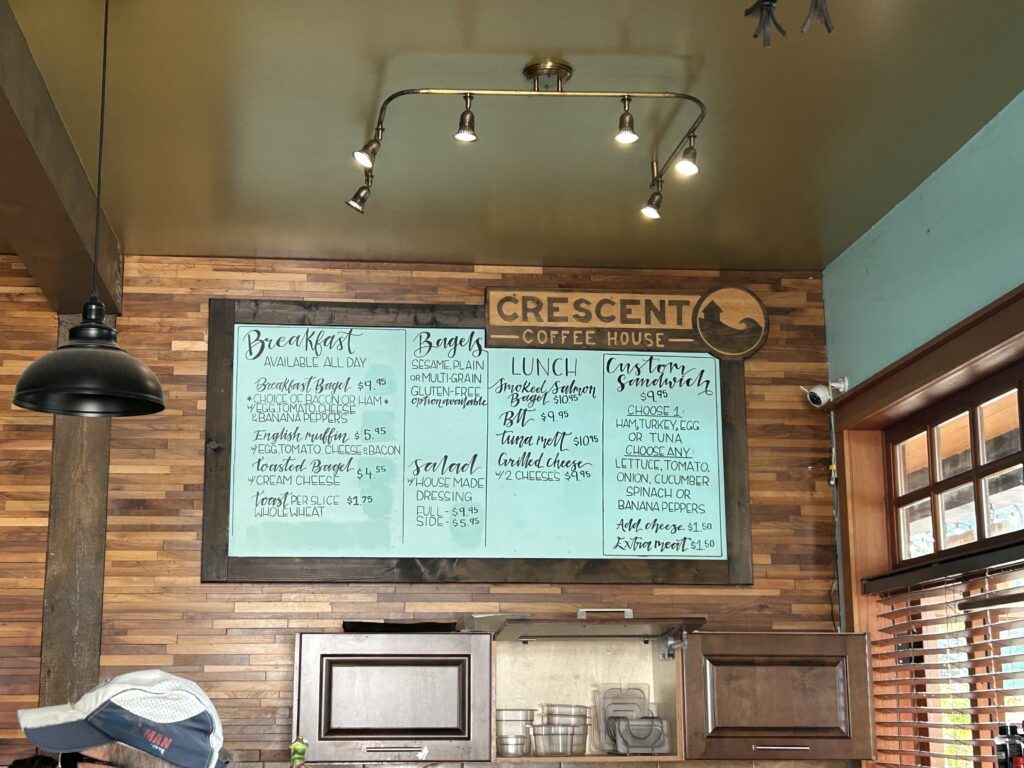 CRESCENT
COFFEE HOUSE
Breakfast
AVAILABLE ALL DAY
Breakfast Bagel $9.95
CHOICE OF BACON OR HAM
W/EGG, TOMATO, CHEESE
& BANANA PEPPERS
English muffin $5.95
W/EGG, TOMATO, CHEESE & BACON
Toasted Bagel $4.55
W/CREAM CHEESE
Toast PER SLICE $1.75
WHOLE WHEAT
Bagels
SESAME, PLAIN
OR MULTI-GRAIN
GLUTEN-FREE
option available
Salad
W/HOUSE MADE
DRESSING
FULL - $9.95
SIDE - $5.95
LUNCH
Smoked Salmon
Bagel $10.95
Blt $9.95
tuna melt $10.95
Grilled cheese
W/2 CHEESES $9.95
Custom
Sandwich
$9.95
CHOOSE 1:
HAM, TURKEY, EGG
OR TUNA
CHOOSE ANY:
LETTUCE, TOMATO,
ONION, CUCUMBER
SPINACH OR
BANANA PEPPERS
Add cheese $1.50
Extra meat $1.50
MAN